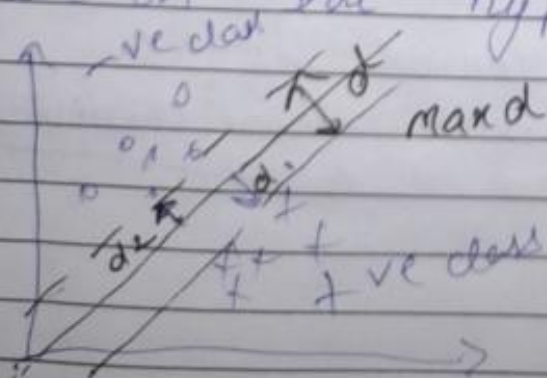 -ve class
d
max d
d
d2
+ve class